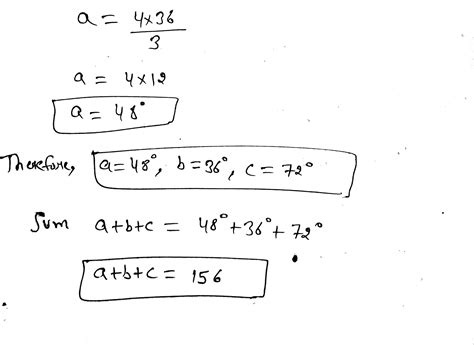 a = 4×36/3
a = 4×12
a = 48°
Therefore, a=48°, b=36°, c=72°
Sum a+b+c = 48°+36°+72°
a+b+c = 156